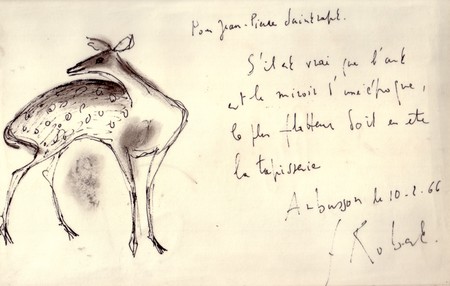 Pour Jean-Pierre
S'il est vrai que l'art
est le miroir d'une époque,
le plus flatteur doit en être
la tapisserie
Aubusson le 10-2-66
Robert.